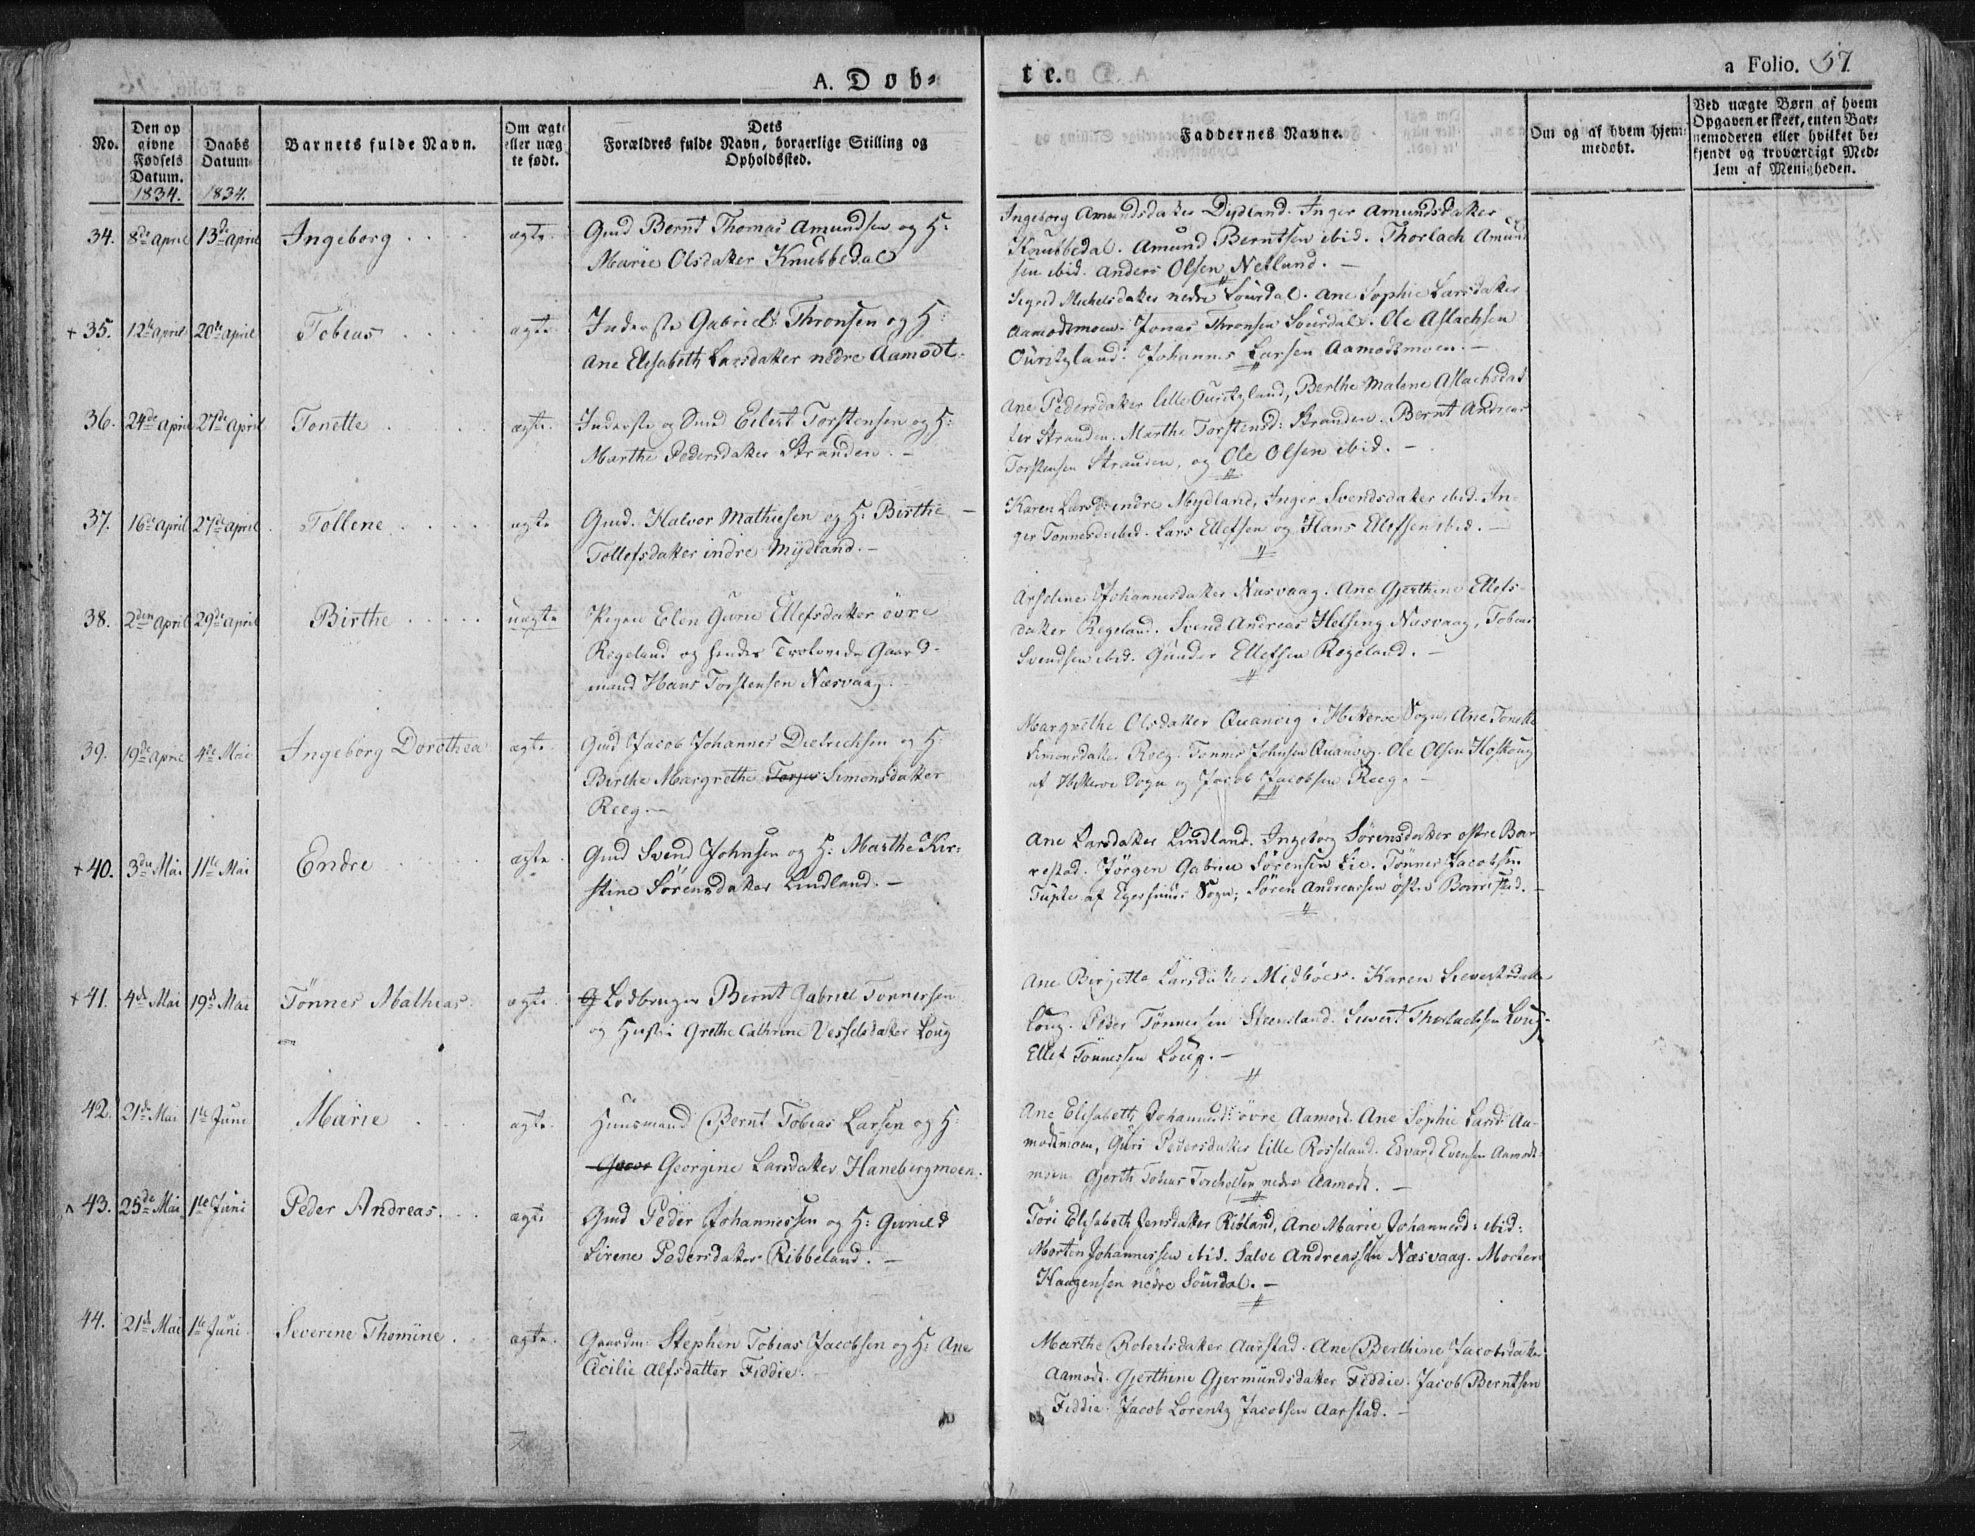 A. Døb=
te.
a Folio. 57.
No.
Den op
givne
Fødsels
Datum.
1834.
Daabs
Datum
1834.
Barnets fulde Navn.
Om ægte
eller uæg
te født.
Dets
Forældres fulde Navn, borgerlige Stilling og
Opholdssted.
Faddernes Navne.
Om og af hvem hjem=
medøbt.
Ved uægte Børn af hvem
Opgaven er skeet, enten Bar=
nemoderen eller hvilket be=
kjendt og troværdigt Med=
lem af Menigheden.
34. 8de April 13de April Ingeborg ægte.
Gmd Bernt Thomas Amundsen og H:
Marie Olsdatter Knubbedal
Ingeborg Amundsdatter Dydland. Inger Amundsdatter
Knubbedal. Amund Berntsen ibid. Thorlach Amund
sen ibid. Anders Olsen Netland. —
+ 35. 12te April 20de April Tobias ægte
Inderste Gabriel Thronsen og H:
Ane Elisabeth Larsdatter nedre Aamodt.
Sigrid Michelsdatter nedre Sourdal. Ane Sophie Larsdatter
Aamodtmoen. Jonas Thronsen Sourdal. Ole Aslachsen
Ouritzland. Johannes Larsen Aamodtmoen. —
36. 24de April 27de April Tonette ægte.
Inderste og Smed Eilert Torstensen og H:
Marthe Pedersdatter Stranden. —
Ane Pedersdatter lille Ouritzland, Berthe Malene Aslachsdat
ter Stranden. Marthe Torstensd: Stranden. Bernt Andreas
Torstensen Stranden, og Ole Olsen ibid. —
37. 16de April 27de April Tollene ægte
Gmd. Halvor Mathiesen og H: Birthe
Tollefsdatter indre Mydland. —
Karen Larsd: indre Mydland, Inger Svendsdatter ibid. In-
ger Tønnesd: ibid. Lars Ellefsen og Hans Ellefsen ibid. —
38. 2den April 29de April Birthe uægte
Pigen Elen Gurie Ellefsdatter övre
Regeland og hendes Trolovede Gaard-
mand Hans Torstensen Næsvaag.
Johannesdatter Næsvaag. Ane Gjerthine Ellefs-
datter Regeland. Svend Andreas Helsing Næsvaag, Tobias
Svendsen ibid. Gunder Ellefsen Regeland. —
39. 19de April 4de Mai Ingeborg Dorothea ægte
Gmd Jacob Johannes Dietrichsen og H:
Birthe Margrethe Simonsdatter
Reeg. —
Margrethe Olsdatter Quanvig i Hitterøe Sogn, Ane Tonette
Simonsdatter Reeg. Tønnes Johnsen Quanvig. Ole Olsen
af Hitterøe Sogn og Jacob Jacobsen Reeg. —
+ 40. 3die Mai 11te Mai Endre ægte.
Gmd Svend Johnsen og H: Marthe Kir=
stine Sörensdatter Lindland. —
Ane Larsdatter Lindland. Ingeborg Sörensdatter østre Bar
restad. Jørgen Gabriel Sørensen Lie. Tønnes Jacobsen
Tupte af Egersunds Sogn; Søren Andreassen østre Barrestad. —
+ 41. 4de Mai 19de Mai Tönnes Mathias. ægte.
Lodbruger Bernt Gabriel Tonnessen
og Hustru Grethe Cathrine Vesselsdatter Loug
Ane Birgitte Larsdatter Midbøe. Karen Sievertsdatter
Loug. Peder Tönnessen Steensland. Sievert Thorlachsen Loug-
Ellef Tönnessen Loug. —
42. 21de Mai 1te Juni Marie ægte.
Huusmand Bernt Tobias Larsen og H:
Georgine Larsdatter Hanebergmoen.
Ane Elisabeth Johannesd: övre Aamodt. Ane Sophie Larsd: Aa-
modtmoen, Guri Pedersdatter lille Rosseland. Edvard Evensen Aamodt-
moen Gjerth Tobias nedre Aamodt. —
43. 25de Mai 1te Juni Peder Andreas. ægte
Gmd Peder Johannessen og H: Gunild
Sirene Pedersdatter Ribbeland. —
Töri Elisabeth Jensdatter Ribland, Ane Marie Johannesd: ibid:
Morten Johannessen ibid. Salve Andreassen Næsvaag. Morten
Haagensen nedre Sourdal. —
44. 21de Mai 1te Juni Severine Thomine. ægte.
Gaardm: Stephen Tobias Jacobsen og H: Ane
Cicilie Alfsdatter Fiddie.
Marthe Robertsdatter Aarstad. Ane Berthine Jacobsdatter
Aamodt. Gjerthine Gjermundsdatter Fiddie. Jacob Berntsen
Fiddie. Jacob Lorentz Jacobsen Aarstad. —